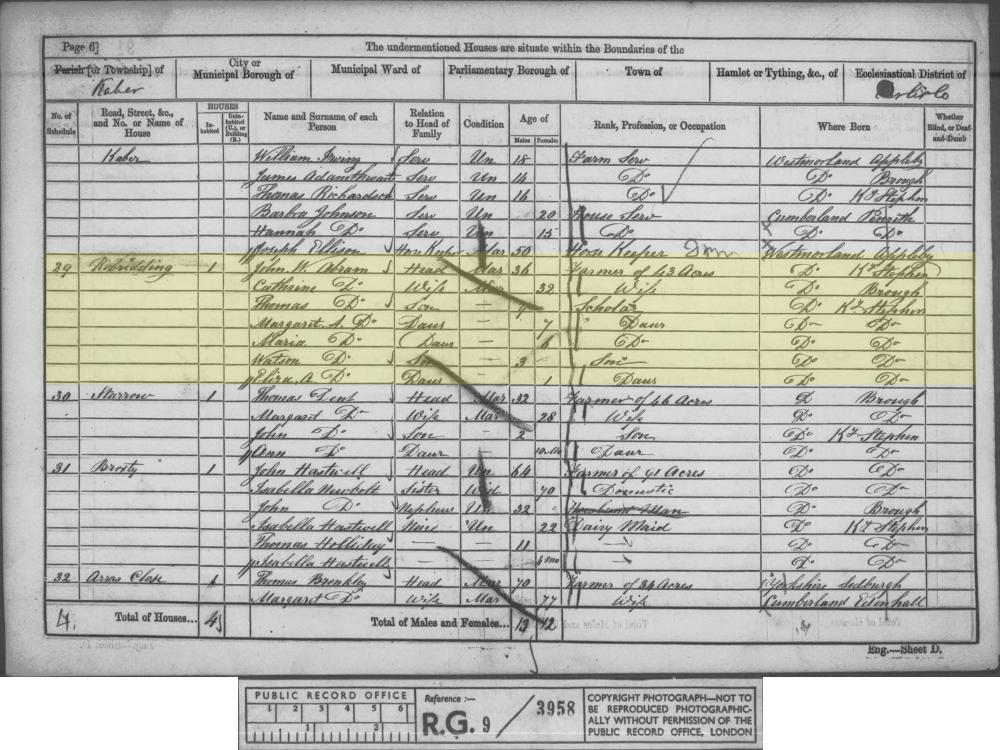 Page 6] The undermentioned Houses are situate within the Boundaries of the
Parish [or Township] of City or Municipal Borough of Municipal Ward of Parliamentary Borough of Town of Hamlet or Tything, &c., of Ecclesiastical District of
Kaber
No. of Schedule Road, Street, &c., and No. or Name of House HOUSES Inhabited Uninhabited (U.), or Building (B.) Name and Surname of each Person Relation to Head of Family Condition Age of Males Females Rank, Profession, or Occupation Where Born Whether Blind, or Deaf-and-Dumb
Kaber William Irving Serv Un 18 Farm Serv Westmorland Appleby
James Adamthwaite Serv Un 14 Do Do Brough
Thomas Richardson Serv Un 16 Do Do Kr Stephen
Barbra Johnson Serv Un 20 House Serv Cumberland Penrith
Hannah Do Serv Un 15 Do Do Do
Joseph Ellison Horse Keeper Mar 50 Horse Keeper Westmorland Appleby
29 Robridding 1 John W. Abram Head Mar 36 Farmer of 43 Acres Do Kr Stephen
Cathrine Do Wife Mar 32 Wife Do Brough
Thomas Do Son — Scholar Do Kr Stephen
Margaret A. Do Daur — 7 Daur Do Do
Maria Do Daur — 6 Do Do Do
Watson Do Son — 3 Son Do Do
Eliza A. Do Daur — 1 Daur Do Do
30 Starrow 1 Thomas Dent Head Mar 32 Farmer of 46 Acres D Brough
Margaret Do Wife Mar 28 Wife Do Do
John Do Son — 2 Son Do Kr Stephen
Ann Do Daur — Daur Do Do
31 Broxty 1 John Hastwell Head Un 64 Farmer of 91 Acres Do Do
Isabella Newbolt Sister Wid 70 Domestic Do Do
John Do Nepheus Un 32 Do Brough
Isabella Hastwell Niece Un 22 Dairy Maid Do Kr Stephen
Thomas Holliday — — 11 — Do Do
Isabella Hastwell — — 4 mo — Do Do
32 Arras Close 1 Thomas Brenkley Head Mar 70 Farmer of 34 Acres Yorkshire Sedburgh
Margaret Do Wife Mar 77 Wife Cumberland Edenhall
4 Total of Houses... 4 Total of Males and Females... 13 12
Eng.—Sheet D.
PUBLIC RECORD OFFICE
1 2 3 4 5 6
1 2
Reference :—
R.G. 9 / 3958
COPYRIGHT PHOTOGRAPH—NOT TO
BE REPRODUCED PHOTOGRAPHIC-
ALLY WITHOUT PERMISSION OF THE
PUBLIC RECORD OFFICE, LONDON